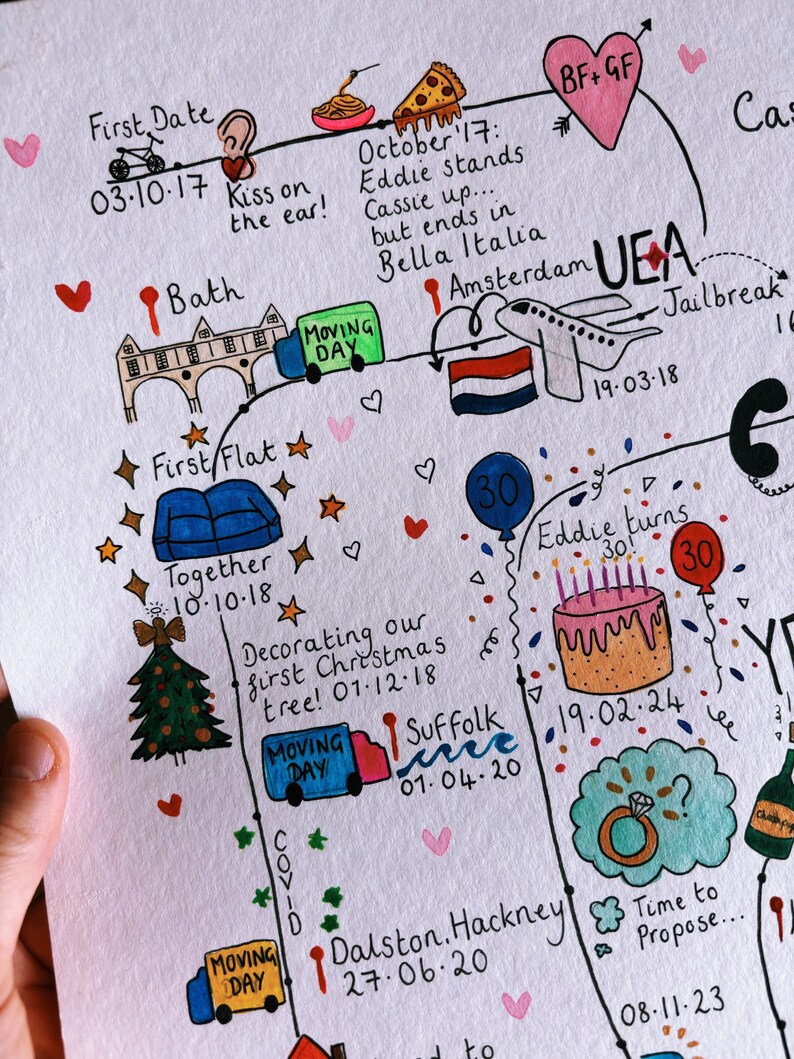 First Date
03.10.17
Kiss on
the ear!
October '17:
Eddie stands
Cassie up...
but ends in
Bella Italia
BF + GF
Cas
UEA
Jailbreak
19.03.18
16
Amsterdam
MOVING
DAY
Bath
First Flat
Together
10.10.18
Decorating our
first Christmas
tree! 01.12.18
MOVING
DAY
Suffolk
01.04.20
COVID
Dalston, Hackney
27.06.20
MOVING
DAY
d to
30
Eddie turns
30!
30
19.02.24
?
Time to
Propose...
08.11.23
YE